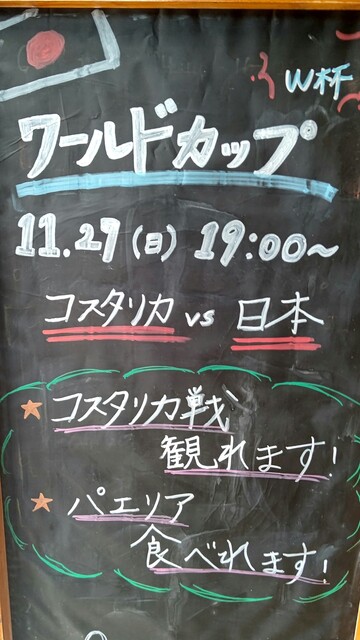 W杯
ワールドカップ
11.27(日) 19:00~
コスタリカ vs 日本
★ コスタリカ戦
観れます!
★ パエリア
食べれます!